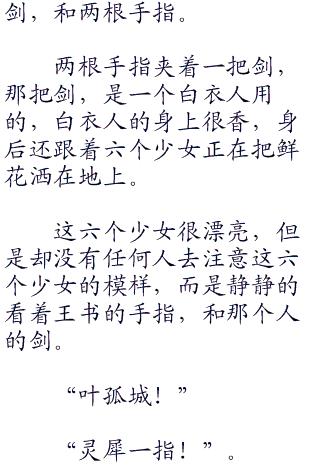 剑，和两根手指。
两根手指夹着一把剑，
那把剑，是一个白衣人用
的，白衣人的身上很香，身
后还跟着六个少女正在把鲜
花洒在地上。
这六个少女很漂亮，但
是却没有任何人去注意这六
个少女的模样，而是静静的
看着王书的手指，和那个人
的剑。
“叶孤城！”
“灵犀一指！”。